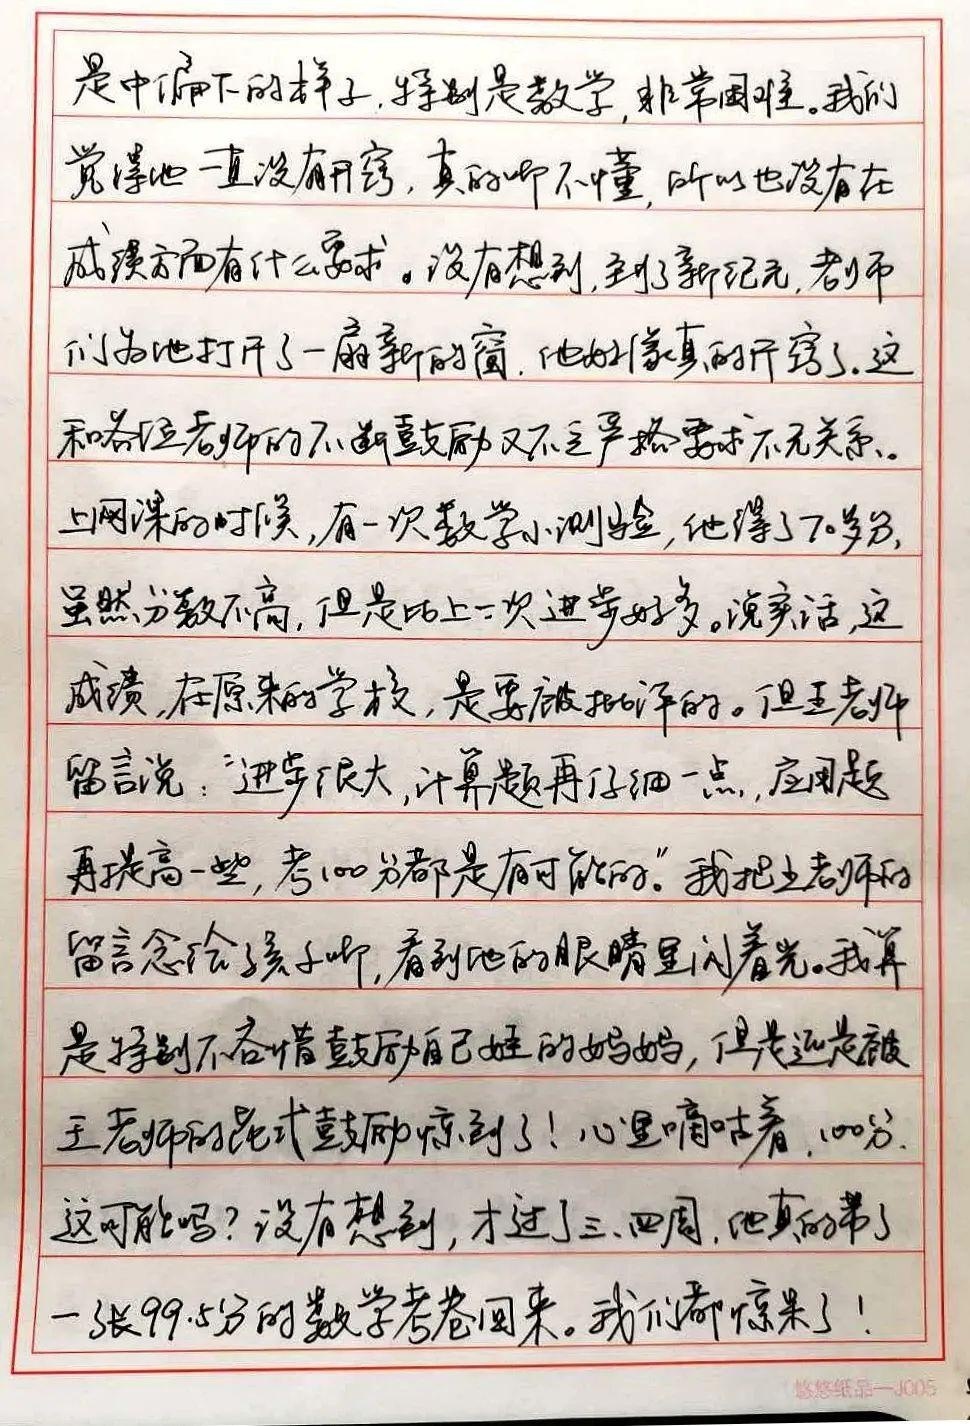 是中偏下的样子,特别是数学,非常困难。我们
觉得他一直没有开窍,真的听不懂,所以也没有在
成绩方面有什么要求。没有想到,到了新纪元,老师
们为他打开了一扇新的窗,他好像真的开窍了。这
和各位老师的不断鼓励又不乏严格要求不无关系。
上网课的时候,有一次数学小测验,他得了70多分,
虽然分数不高,但是比上一次进步好多。说实话,这
成绩,在原来的学校,是要被批评的。但王老师
留言说:“进步很大,计算题再仔细一点,应用题
再提高一些,考100分都是有可能的。”我把王老师的
留言念给孩子听,看到他的眼睛里闪着光。我算
是特别不吝惜鼓励自己娃的妈妈,但是还是被
王老师的花式鼓励惊到了!心里嘀咕着,100分,
这可能吗?没有想到,才过了三、四周,他真的带了
一张99.5分的数学考卷回来。我们都惊呆了!
悠悠纸品—J005